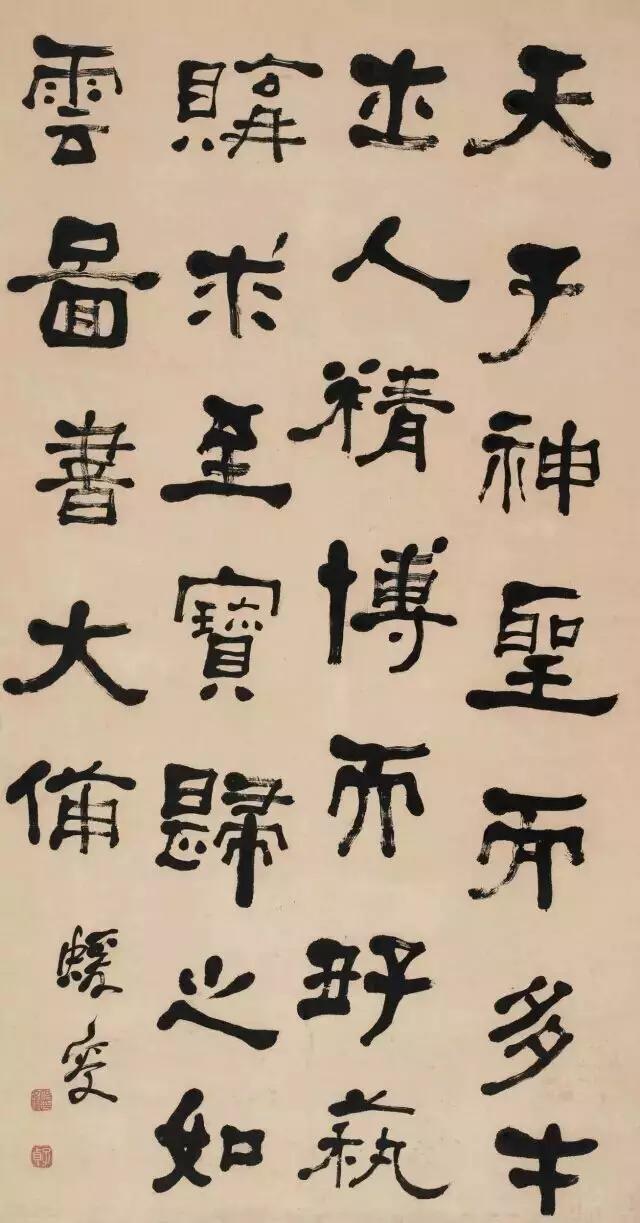 天子神聖而多才
士人精博而好蓺
購求至寶歸之如
雲圖書大備
蝯叟
子貞